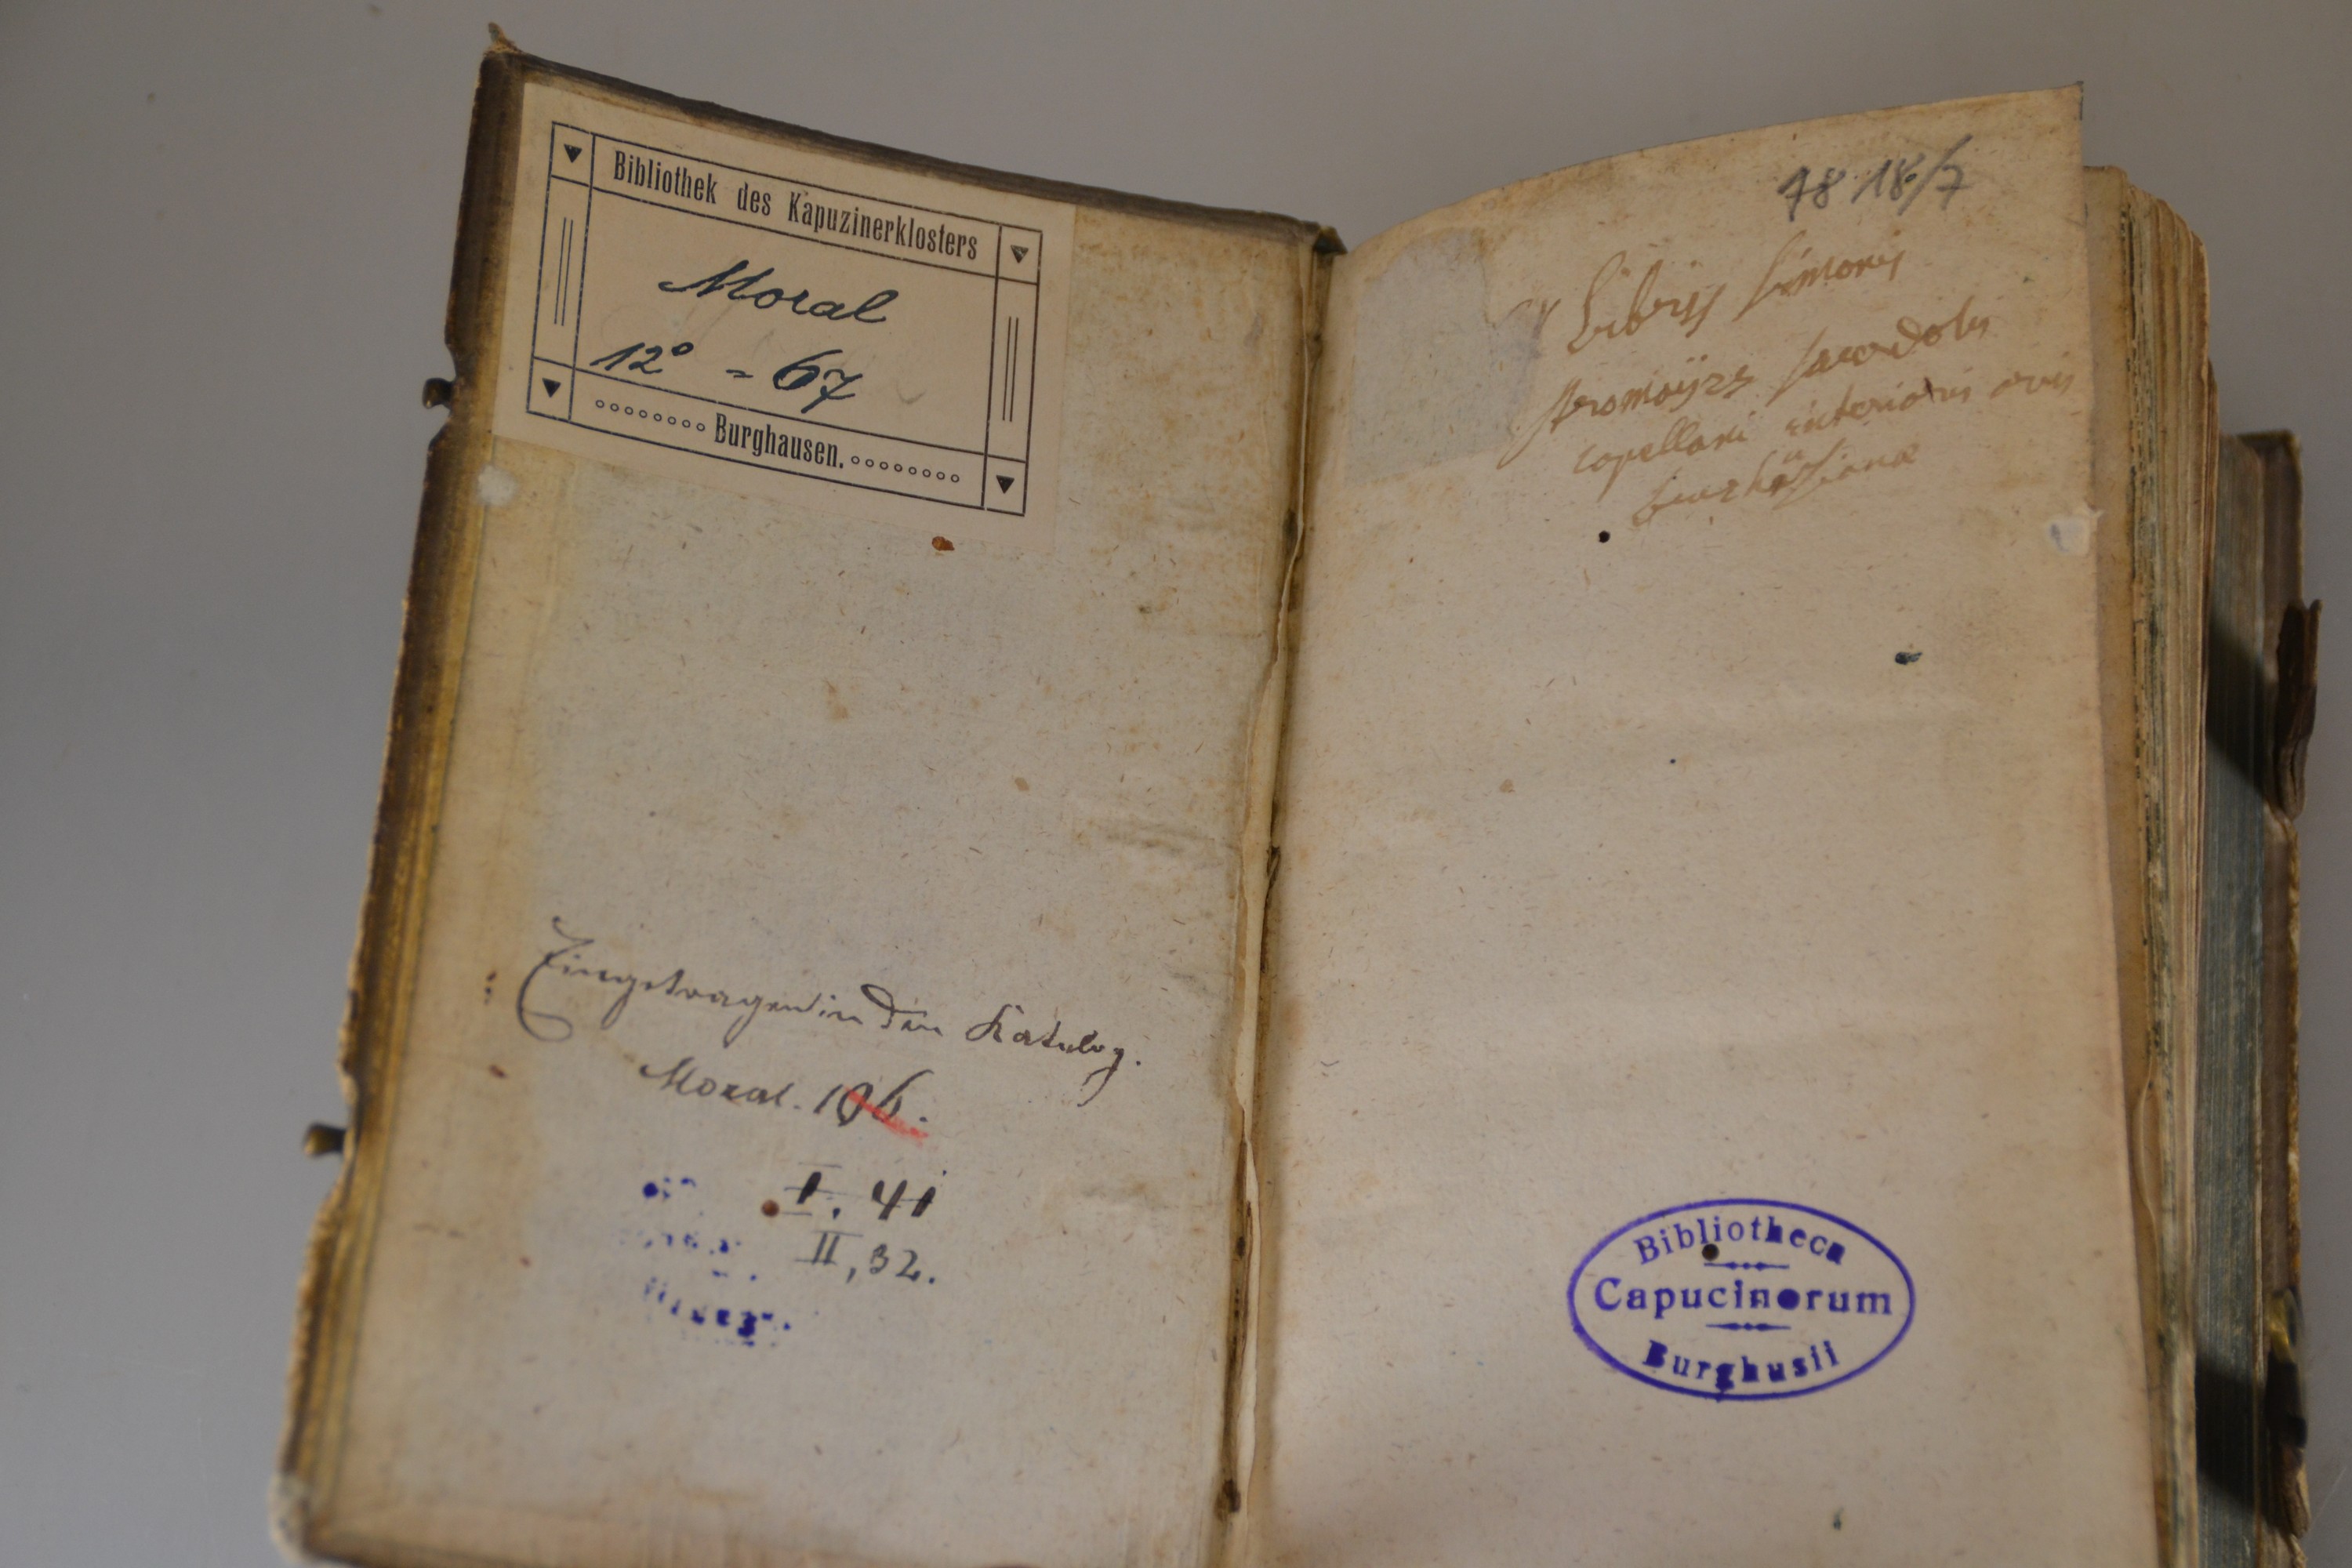 Bibliothek des Kapuzinerklosters
Moral
12° = 67
Burghausen.
Eingetragen in den Katalog.
Moral. 106.
I. 41
II, 32.
18/7
Ex Librys Simonis
sacerdotis
capellani interioris arcis
burghusianæ
Bibliotheca
Capucinorum
Burghusii